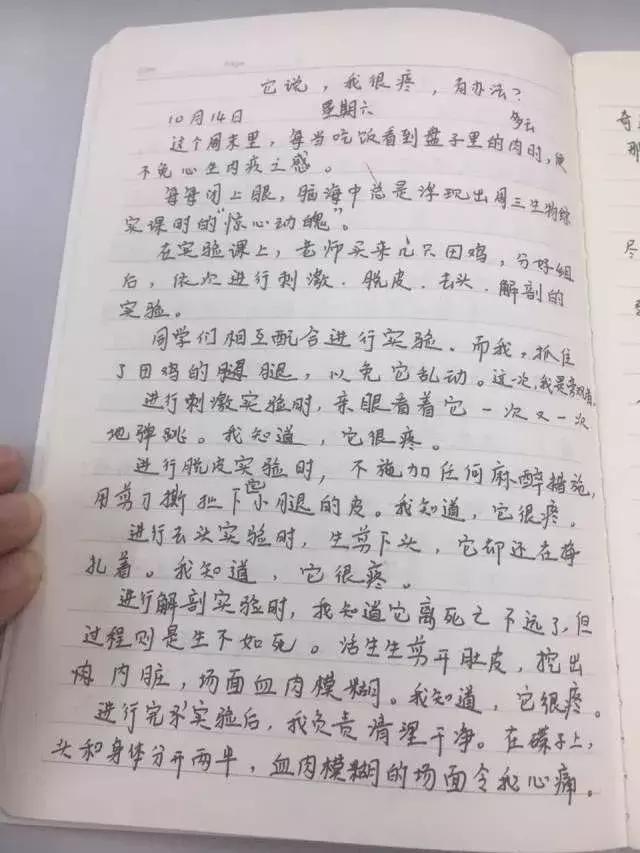 它说，我很疼，有办法？
10月14日 星期六 多云
这个周末里，每当吃饭看到盘子里的肉时，便
不免心生内疚之感。
每每闭上眼，脑海中总是浮现出周三生物综
实课时的“惊心动魄”。
在实验课上，老师买来几只田鸡，分好组
后，依次进行刺激、脱皮、去头、解剖的
实验。
同学们相互配合进行实验。而我，抓住
了田鸡的腿，以免它乱动。这一次，我是旁观者。
进行刺激实验时，亲眼看着它一次又一次
地弹跳。我知道，它很疼。
进行脱皮实验时，不施加任何麻醉措施，
用剪刀撕扯下它小腿的皮。我知道，它很疼。
进行去头实验时，生剪下头，它却还在挣
扎着。我知道，它很疼。
进行解剖实验时，我知道它离死亡不远了，但
过程则是生不如死。活生生剪开肚皮，挖出
内脏，场面血肉模糊。我知道，它很疼。
进行完实验后，我负责清理干净。在碟子上，
头和身体分开两半，血肉模糊的场面令我心痛。
奇
那
尽